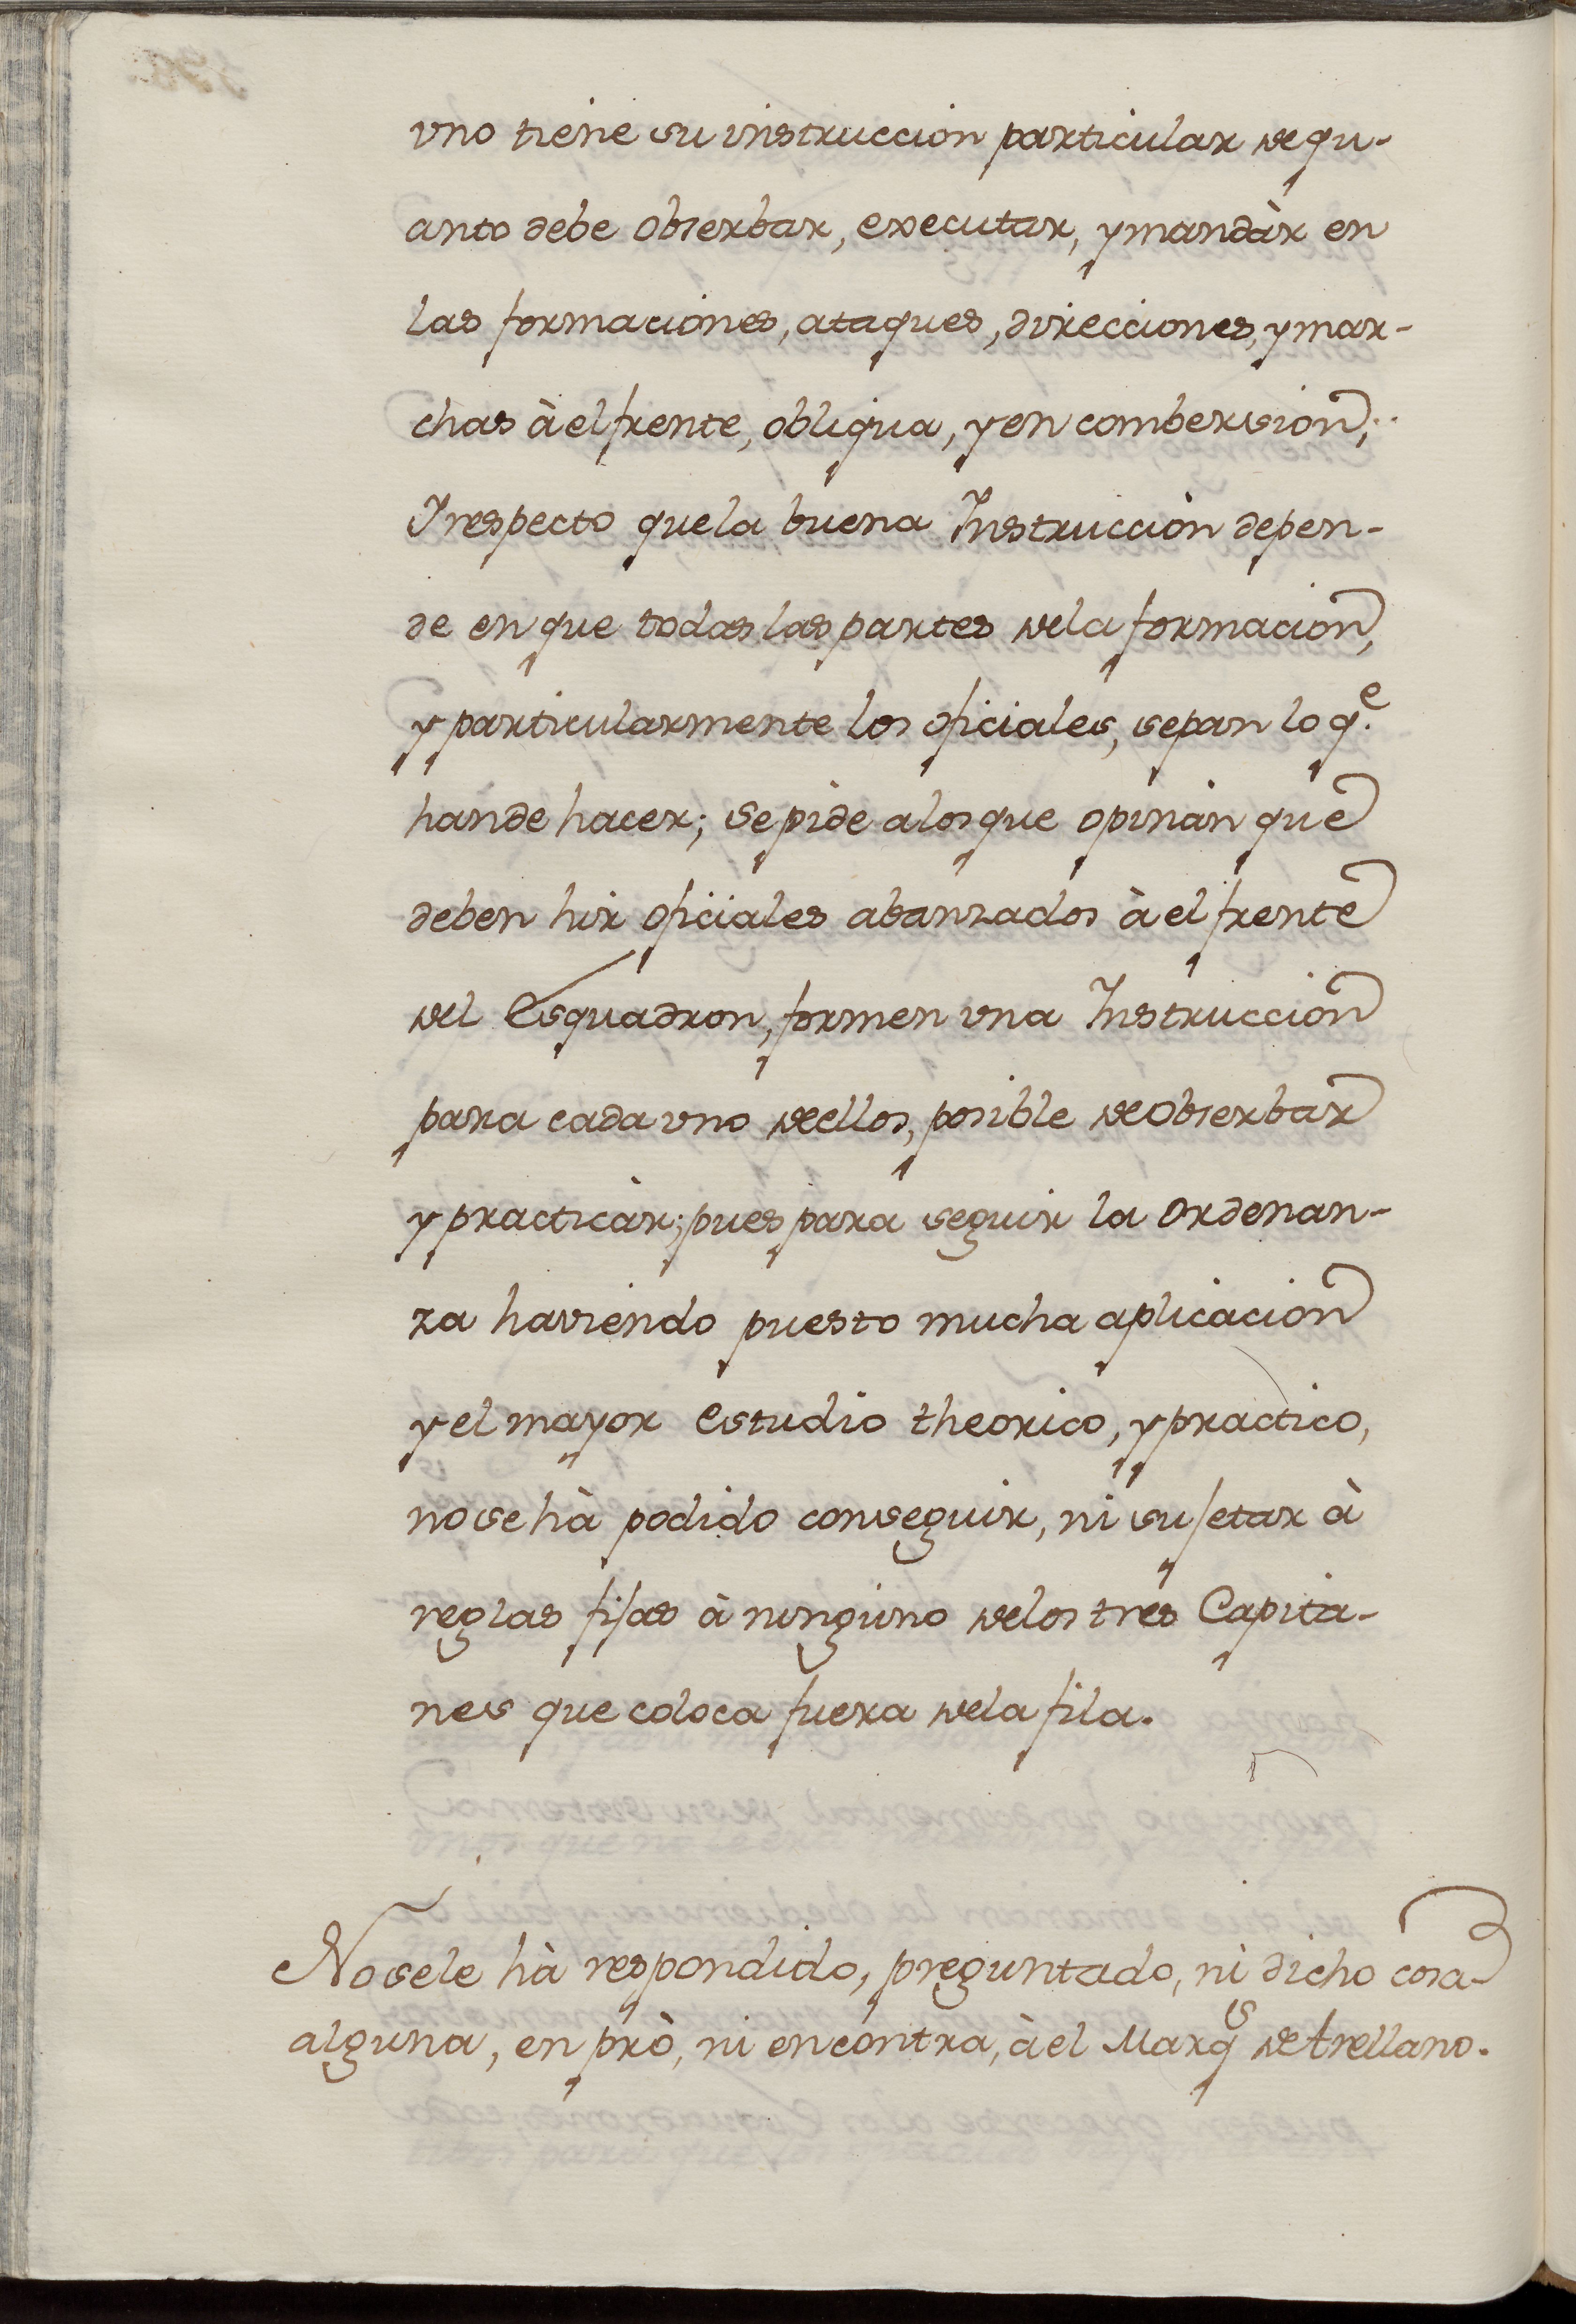 vno tiene su instruccion particular de qu-
anto debe obserbar, executar, y mandàr en
las formaciones, ataques, direcciones, y mar-
chas à el frente, obliqua, y en combersion;
Y respecto que la buena Instruccion depen-
de en que todas las partes de la formacion,
y particularmente los oficiales, sepan lo q.e
han de hacer; se pide a los que opinàn que
deben hir oficiales abanzados à el frente
del Esquadron, formen vna Instruccion
para cada vno de ellos, posible de obserbar
y practicàr; pues para seguir la Ordenan-
za haviendo puesto mucha aplicacion
y el mayor estudio theorico, y practico,
no se hà podido conseguir, ni sujetar à
reglas fijas à ninguno de los tres Capita-
nes que coloca fuera de la fila.
No se le hà respondido, preguntado, ni dicho cosa
alguna, en prò, ni en contra, à el Marqs de Arellano.